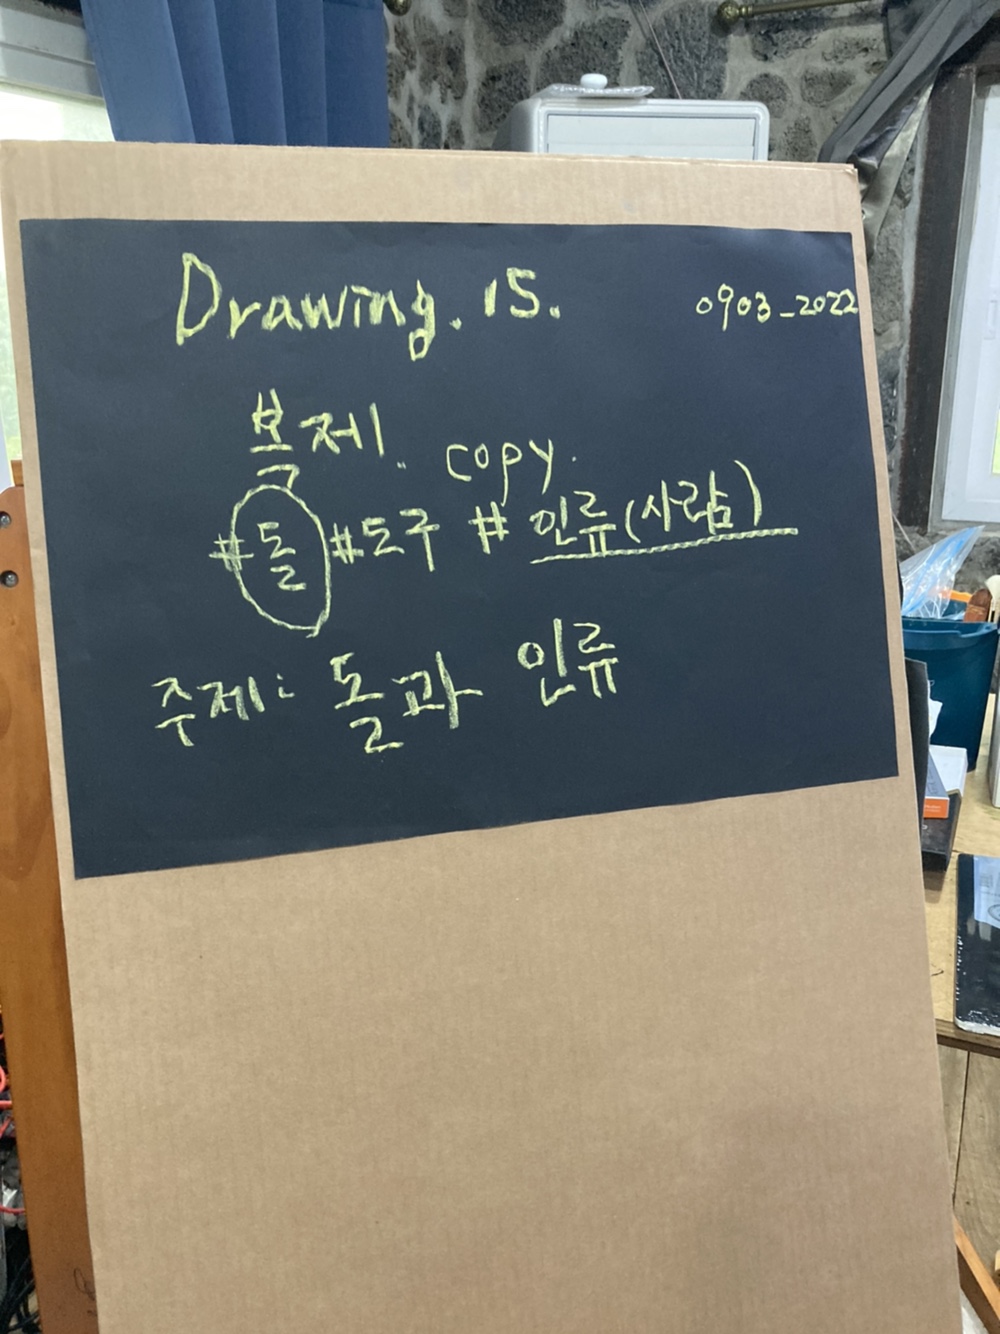 Drawing. 15.
0903_2022
복제. copy.
#돌 #도구 #인류(사람)
주제: 돌과 인류